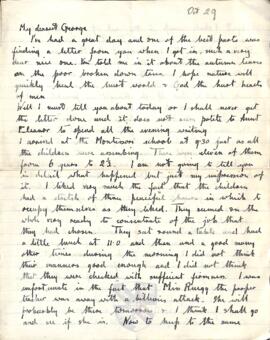 Oct 29
My dearest George
I've had a great day and one of the best parts was
finding a letter from you when I got in, such a very
dear nice one. You told me in it about the autumn leaves
on the poor broken down trees. I hope nature will
quickly heal the hurt world & God the hurt hearts
of men
Well I must tell you about today or I shall never get
the letter done and it does not seem polite to Aunt
Eleanor to spend all the evening writing
I arrived at the Montissori school at 9.30 just as all
the children were assembling. There were eleven of them
from 6 years to 2½. I am not going to tell you
in detail what happened but just my impression of
it. I liked very much the fact that the children
had a stretch of three peaceful hours in which to
occupy themselves as they liked. They seemed on the
whole very ready to concentrate of the job that
they had chosen. They sat round a table and had
a little lunch at 11.0 and then and a good many
other times during the morning I did not think
their manners good enough and I did not think
that they were checked with sufficient firmness. I was
unfortunate in the fact that Miss the proper
teacher was away with a bilious attack. She will
probably be there tomorrow & I think I shall go
and see if she is. Now to keep to the same